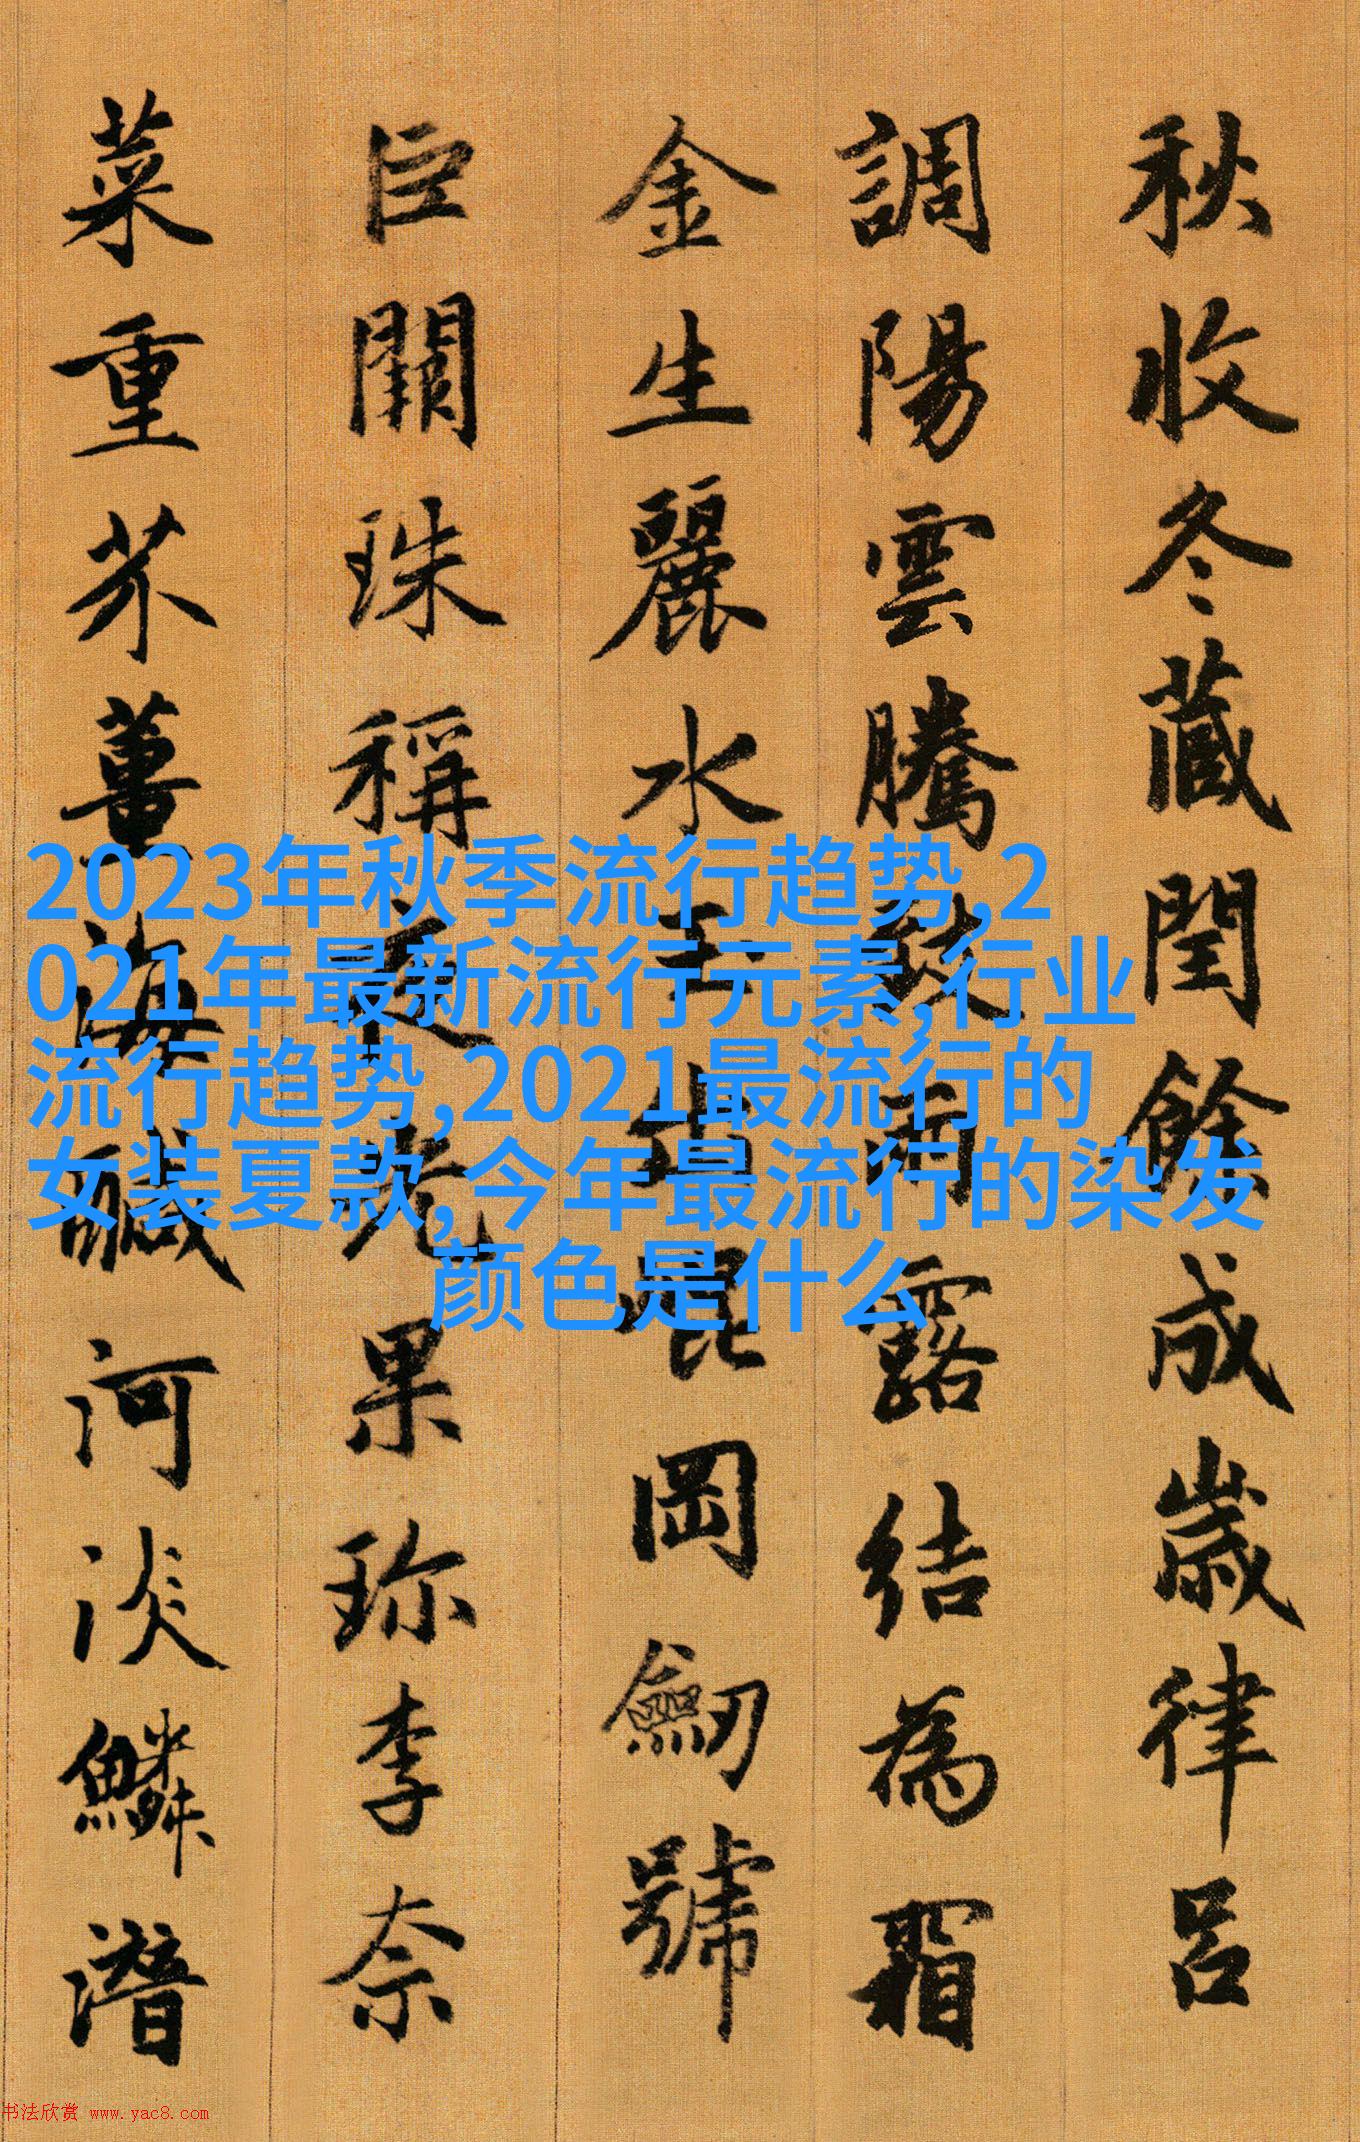 秋收冬藏閏餘成歲律呂
調陽雲騰致雨露結為霜
金生麗水玉出崑岡劒號
巨闕珠稱夜光果珎李奈
菜重芥薑海醎河淡鱗潛
2023年秋季流行趋势,2
021年最新流行元素,行业
流行趋势,2021最流行的
女装夏款,今年最流行的染发
颜色是什么
书法欣赏 www.yac8.com